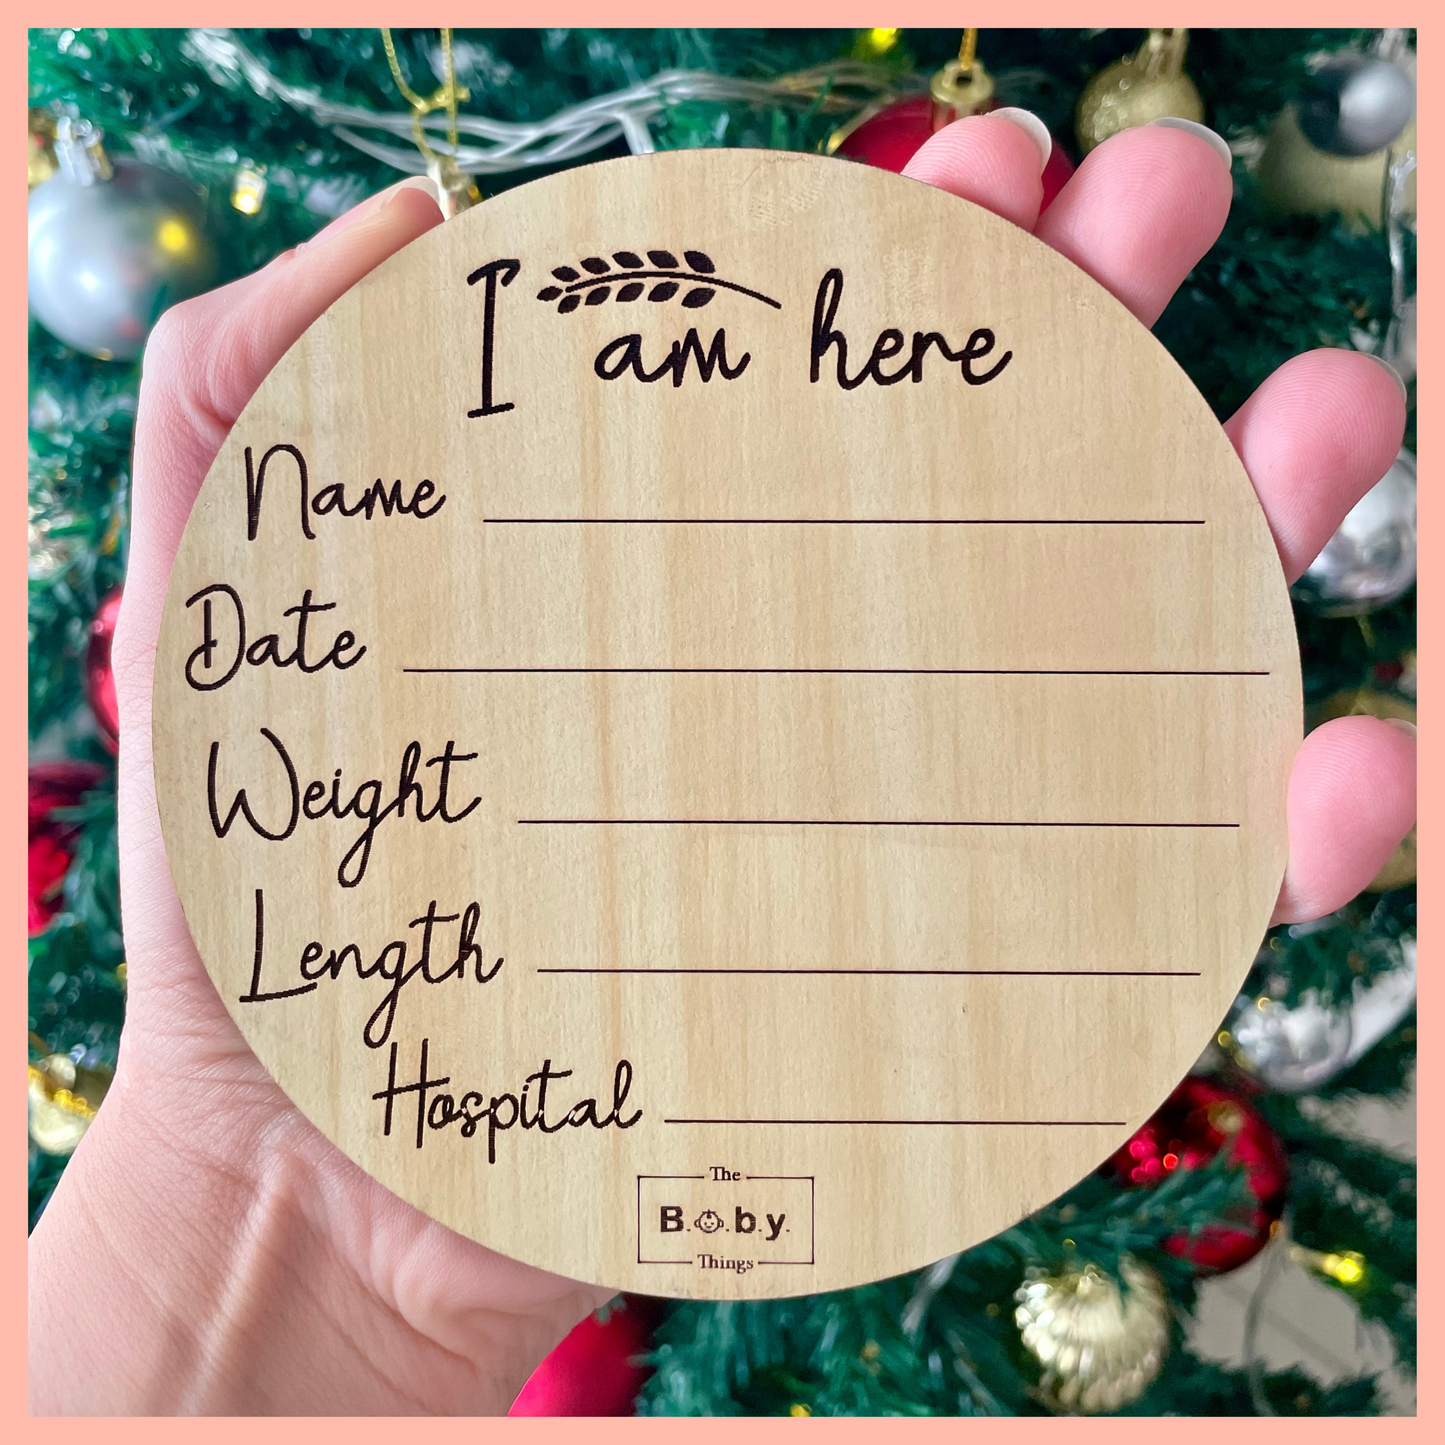 I am here
Name
Date
Weight
Length
Hospital
The
B.o.b.y.
Things